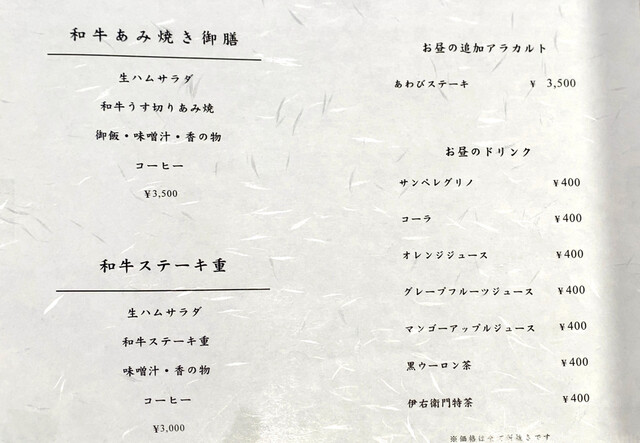 和牛あみ焼き御膳
生ハムサラダ
和牛うす切りあみ焼
御飯・味噌汁・香の物
コーヒー
¥3,500
和牛ステーキ重
生ハムサラダ
和牛ステーキ重
味噌汁・香の物
コーヒー
¥3,000
お昼の追加アラカルト
あわびステーキ ¥ 3,500
お昼のドリンク
サンペレグリノ ¥400
コーラ ¥400
オレンジジュース ¥400
グレープフルーツジュース ¥400
マンゴーアップルジュース ¥400
黒ウーロン茶 ¥400
伊右衛門特茶 ¥400
※価格は全て税抜きです